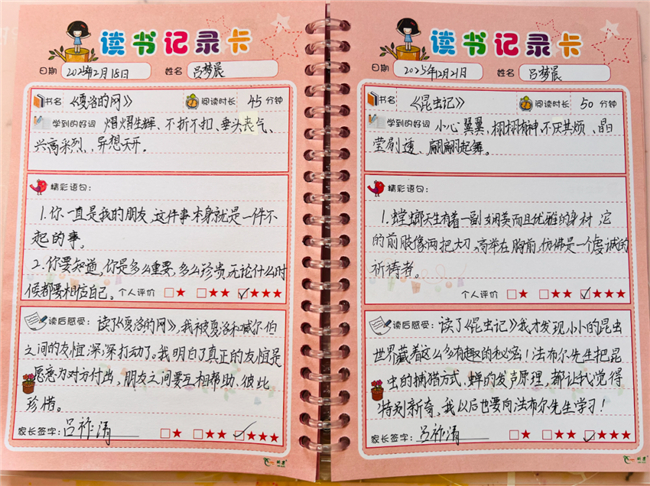 读书记录卡
日期 2025年2月18日 姓名 吕梦晨
书名 《夏洛的网》 阅读时长 45 分钟
学到的好词 熠熠生辉、不折不扣、垂头丧气、
兴高采烈、异想天开。
精彩语句:
1.你一直是我的朋友,这件事本身就是一件不
起的事。
2.你要知道,你是多么重要,多么珍贵,无论什么时
候都要相信自己。 个人评价 □★ □★★ ☑★★★
读后感受: 读了《夏洛的网》,我被夏洛和威尔伯
之间的友谊深深打动了。我明白了真正的友谊是
愿意为对方付出,朋友之间要互相帮助、彼此
珍惜。
家长签字: 吕祚清 □★ □★★ ☑★★★
读书记录卡
日期 2025年2月21日 姓名 吕梦晨
书名 《昆虫记》 阅读时长 50 分钟
学到的好词 小心翼翼、栩栩有神、不厌其烦、晶
莹剔透、翩翩起舞。
精彩语句:
1.螳螂天生有着一副娴美而且优雅的身材,它
的前肢像两把大刀,高举在胸前,仿佛是一个虔诚的
祈祷者。
个人评价 □★ □★★ ☑★★★
读后感受: 读了《昆虫记》我才发现小小的昆虫
世界藏着这么多有趣的秘密!法布尔先生把昆
虫的捕猎方式、蝉的发声原理,都让我觉得
特别新奇。我以后也要向法布尔先生学习!
家长签字: 吕祚清 □★ □★★ ☑★★★